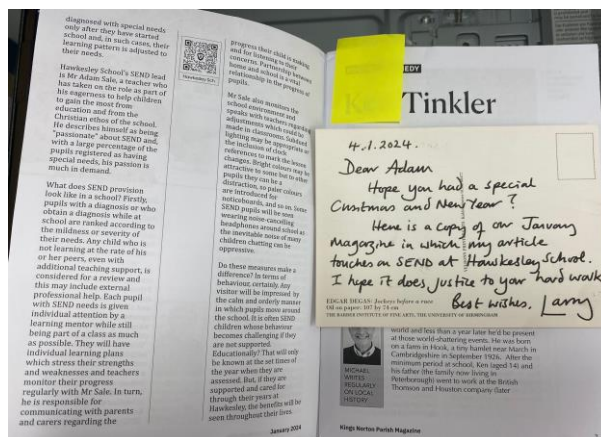 diagnosed with special needs
only after they have started
school and, in such cases, their
learning pattern is adjusted to
their needs.
Hawkesley School's SEND lead
is Mr Adam Sale, a teacher who
has taken on the role as part of
his eagerness to help children
to gain the most from
education and from the
Christian ethos of the school.
He describes himself as being
"passionate" about SEND and,
with a large percentage of the
pupils registered as having
special needs, his passion is
much in demand.
What does SEND provision
look like in a school? Firstly,
pupils with a diagnosis or who
obtain a diagnosis while at
school are ranked according to
the mildness or severity of
their needs. Any child who is
not learning at the rate of his
or her peers, even with
additional teaching support, is
considered for a review and
this may include external
professional help. Each pupil
with SEND needs is given
individual attention by a
learning mentor while still
being part of a class as much
as possible. They will have
individual learning plans
which stress their strengths
and weaknesses and teachers
monitor their progress
regularly with Mr Sale. In turn,
he is responsible for
communicating with parents
and carers regarding the
Hawkesley Sch.
progress their child is making
and for listening to their
concerns. Partnership between
home and school is a vital
relationship in the progress of
pupils.
Mr Sale also monitors the
school environment and
speaks with teachers regarding
adjustments which could be
made in classrooms. Subdued
lighting may be appropriate or
the inclusion of clock
references to mark the lesson
changes. Bright colours may be
attractive to some but to other
pupils they can be a
distraction, so paler colours
are introduced for
noticeboards, and so on. Some
SEND pupils will be seen
wearing noise-cancelling
headphones around school as
the inevitable noise of many
children chatting can be
oppressive.
Do these measures make a
difference? In terms of
behaviour, certainly. Any
visitor will be impressed by
the calm and orderly manner
in which pupils move around
the school. It is often SEND
children whose behaviour
becomes challenging if they
are not supported.
Educationally? That will only
be known at the set times of
the year when they are
assessed. But, if they are
supported and cared for
through their years at
Hawkesley, the benefits will be
seen throughout their lives.
January 2024
Tinkler
4.1.2024.
Dear Adam
Hope you had a special
Christmas and New Year?
Here is a copy of our January
magazine in which my article
touches on SEND at Hawkesley School.
I hope it does justice to your hard work
Best wishes, Larry
EDGAR DEGAS: Jockeys before a race
Oil on paper: 107 by 74 cm
THE BARBER INSTITUTE OF FINE ARTS, THE UNIVERSITY OF BIRMINGHAM
world and less than a year later he'd be present
at those world-shattering events. He was born
on a farm in Hook, a tiny hamlet near March in
Cambridgeshire in September 1926. After the
minimum period at school, Ken (aged 14) and
his father (the family now living in
Peterborough) went to work at the British
Thomson and Houston company (later
MICHAEL
WRITES
REGULARLY
ON LOCAL
HISTORY
Kings Norton Parish Magazine